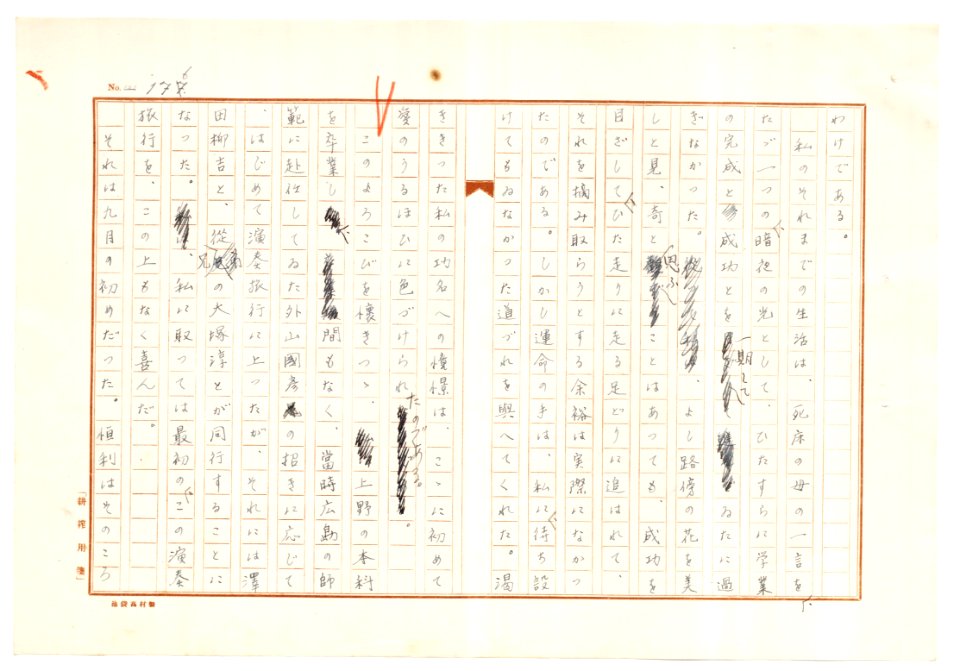 No. 
わけである。
私のそれまでの生活は、死床の母の一言を
たゞ一つの暗夜の光として、ひたすらに学業
の完成と成功とを一期してゐたに過
ぎなかった。よし路傍の花を美
しと見、奇と思ふことはあっても、成功を
目ざしてひた走りに走る足どりに追はれて、
それを摘み取らうとする余裕は実際になかっ
たのである。しかし運命の手は、私に待ち設
けてもゐなかった道づれを與へてくれた。渇
ききった私の功名への憧憬は、こゝに初めて
愛のうるほひに色づけられたのである。
このよろこびを懐きつゝ、上野の本科
を卒業し、間もなく、當時広島の師
範に赴任してゐた外山國彦の招きに応じて
、はじめて演奏旅行に上ったが、それには澤
田柳吉と、從兄の大塚淳とが同行することに
なった。私に取っては最初のこの演奏
旅行を、この上もなく喜んだ。
それは九月の初めだった。恒利はそのころ
「耕筰用箋」